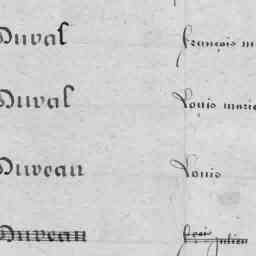 Duval François m
Duval Louis marie
Duveau Louis
Duveau frçois julien